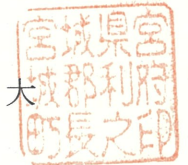 大
宮城県宮
城郡利府
町長之印